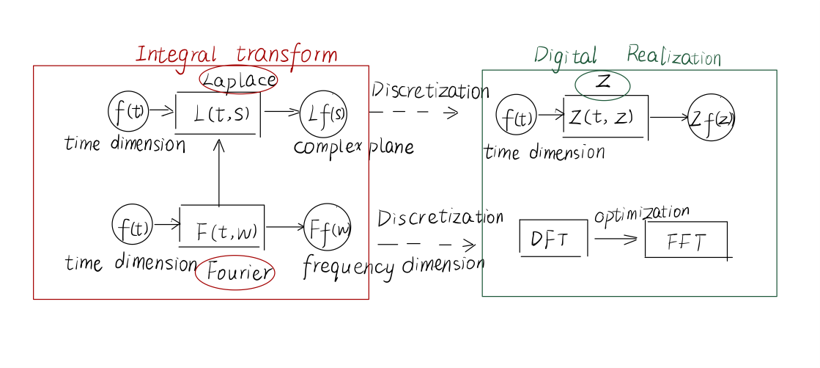 Integral transform
Laplace
f(t)
L(t,s)
Lf(s)
time dimension
complex plane
f(t)
F(t,w)
Ff(w)
time dimension
Fourier
frequency dimension
Discretization
Discretization
Digital Realization
Z
f(t)
Z(t, z)
Zf(z)
time dimension
DFT
optimization
FFT